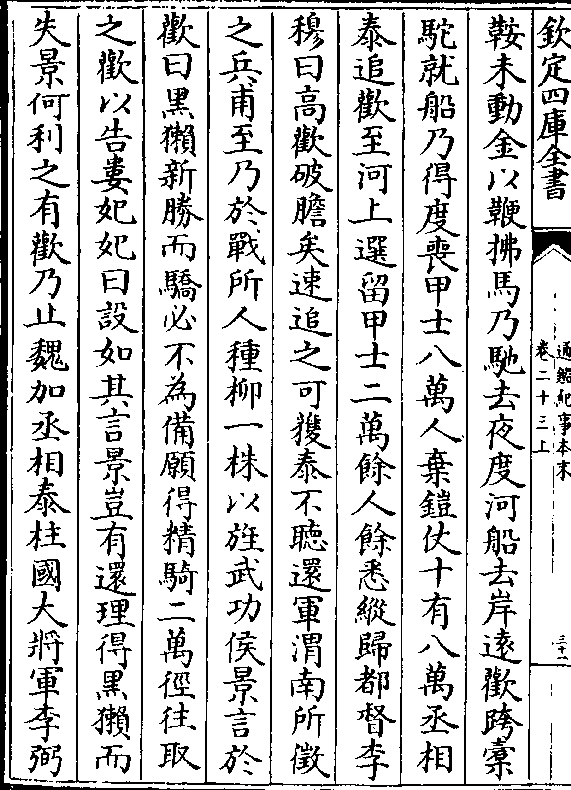 欽定四庫全書
通鑑紀事本末
卷二十三上
三十一
鞍未動金以鞭拂馬乃馳去夜度河船去岸遠歡跨橐
駝就船乃得度喪甲士八萬人棄鎧仗十有八萬丞相
泰追歡至河上選留甲士二萬餘人餘悉縱歸都督李
穆曰高歡破膽矣速追之可獲泰不聽還軍渭南所徵
之兵甫至乃於戰所人種柳一株以旌武功侯景言於
歡曰黑獺新勝而驕必不為備願得精騎二萬徑往取
之歡以告婁妃妃曰設如其言景豈有還理得黑獺而
失景何利之有歡乃止魏加丞相泰柱國大將軍李弼